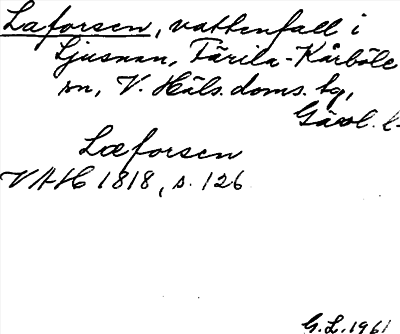 Laforsen, vattenfall i
Ljusnan, Färila-Kårböle
sn, V. Häls. doms. sg,
Gävl. l.
Læforsen
VAH 1818, s. 126
G.L. 1961